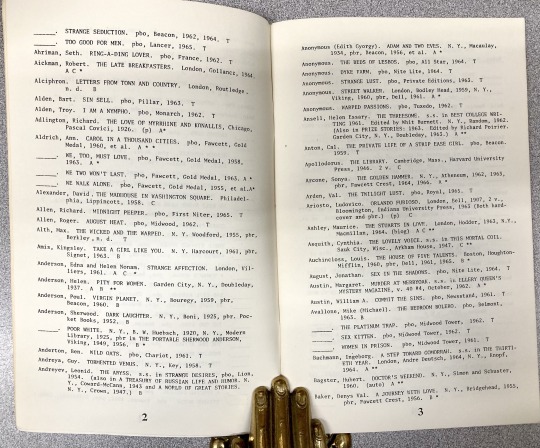 _____. STRANGE SEDUCTION. pbo, Beacon, 1962, 1964. T
_____. TOO GOOD FOR MEN. pbo, Lancer, 1965. T
Ahriman, Seth. RING-A-DING LOVER. pbo, France, 1962. T
Aickman, Robert. THE LATE BREAKFASTERS. London, Gollancz, 1964.
A C *
Alciphron. LETTERS FROM TOWN AND COUNTRY. London, Routledge.
n. d. B
Alden, Bart. SIN SELL. pbo, Pillar, 1963. T
Alden, Troy. I AM A NYMPHO. pbo, Monarch, 1962. T
Adlington, Richard. THE LOVE OF MYRRHINE AND KONALLIS, Chicago,
Pascal Covici, 1926. (p) A*
Aldrich, Ann. CAROL IN A THOUSAND CITIES. pbo, Fawcett, Gold
Medal, 1960, et al. A *
_____. WE, TOO, MUST LOVE. pbo, Fawcett, Gold Medal, 1958,
1963. A *
_____. WE TWO WON'T LAST. pbo, Fawcett, Gold Medal, 1963. A *
_____. WE WALK ALONE. pbo, Fawcett, Gold Medal, 1955, et al.A*
Alexander, David. THE MADHOUSE IN WASHINGTON SQUARE. Philadel-
phia, Lippincott, 1958. C
Allen, Richard. MIDNIGHT PEEPER. pbo, First Niter, 1965. T
Allen, Roger. AUGUST HEAT. pbo, Midwood, 1962. T
Alth, Max. THE WICKED AND THE WARPED. N. Y. Woodford, 1955, pbr,
Berkley, n. d. T
Amis, Kingsley. TAKE A GIRL LIKE YOU. N.Y. Harcourt, 1961, pbr,
Signet, 1963. B
Anderson, Edna and Helen Nonam. STRANGE AFFECTION. London, Vil-
liers, 1961. A C *
Anderson, Helen. PITY FOR WOMEN. Garden City, N. Y., Doubleday,
1937. A B **
Anderson, Poul. VIRGIN PLANET. N. Y., Bouregy, 1959, pbr,
Beacon, 1960. B
Anderson, Sherwood. DARK LAUGHTER. N. Y., Boni, 1925, pbr, Poc-
ket Books, 1952. B
_____. POOR WHITE. N. Y., B. W. Huebsch, 1920, N. Y., Modern
Library, 1925, pbr in THE PORTABLE SHERWOOD ANDERSON,
Viking, 1949, 1956. B *
Anderton, Ben. WILD OATS. pbo, Chariot, 1961. T
Andreya, Guy. TORMENTED VENUS. N. Y., Key, 1958. T
Andreyev, Leonid. THE ABYSS. s.s. in STRANGE DESIRES, pbo, Lion,
1954. (also in A TREASURY OF RUSSIAN LIFE AND HUMOR. N.
Y., Coward-McCann, 1943 and A WORLD OF GREAT STORIES.
N. Y., Crown, 1947.) B
2
Anonymous (Edith Gyorgy). ADAM AND TWO EVES. N. Y., Macaulay,
1934, pbr, Beacon, 1956, et al. A *
Anonymous. THE BEDS OF LESBOS. pbo, All Star, 1964. T
Anonymous. DYKE FARM. pbo, Nite Lite, 1964. T
Anonymous. STRANGE LUST. pbo, Private Editions, 1963. T
Anonymous. STREET WALKER. London, Bodley Head, 1959, N. Y.,
Viking, 1960, pbr, Dell, 1961. A *
Anonymous. WARPED PASSIONS. pbo, Tuxedo, 1962. T
Ansell, Helen Essary. THE THREESOME. s.s. in BEST COLLEGE WRI-
TING 1961. Edited by Whit Burnett. N. Y., Random, 1962.
(Also in PRIZE STORIES: 1963. Edited by Richard Poirier.
Garden City, N. Y., Doubleday, 1963.) A **
Anton, Cal. THE PRIVATE LIFE OF A STRIP TEASE GIRL. pbo, Beacon,
1959. T
Apollodorus. THE LIBRARY. Cambridge, Mass., Harvard University
Press, 1966. 2 v. C
Arcone, Sonya. THE GOLDEN HAMMER. N. Y., Atheneum, 1963,
pbr, Fawcett Crest, 1964, 1966. A *
Arden, Val. THE TWILIGHT LUST. pbo, Royal, 1965. T
Ariosto, Ludovico. ORLANDO FURIOSO. London, Bell, 1907, 2 v.,
Bloomington, Indiana University Press, 1963 (both hard-
cover and pbr.) (p) C
Ashley, Maurice. THE STUARTS IN LOVE. London, Hodder, 1963, N.Y.,
Macmillan, 1964. (biog) A C **
Asquith, Cynthia. THE LOVELY VOICE. s.s. in THIS MORTAL COIL.
Sauk City, Wisc., Arkham House, 1947. C **
Auchincloss, Louis. THE HOUSE OF FIVE TALENTS. Boston, Houghton-
Mifflin, 1960, pbr, Dell, 1961, 1965. B *
August, Jonathan. SEX IN THE SHADOWS. pbo, Nite Lite, 1964. T
Austin, Margaret. MURDER AT MERRYOAK. s.s. in ELLERY QUEEN'S
MYSTERY MAGAZINE, v. 40 #4, October, 1962. A *
Austin, William A. COMMIT THE SINS. pbo, Newsstand, 1961. T
Avallone, Mike (Michael). THE BEDROOM BOLERO. pbo, Belmont,
1963. B
_____. THE PLATINUM TRAP. pbo, Midwood Tower, 1962.
_____. SEX KITTEN. pbo, Midwood Tower, 1962. T
_____. WOMEN IN PRISON. pbo, Midwood Tower, 1961. T
Bachmann, Ingeborg. A STEP TOWARD GOMORRAH. s.s. in THE THIRTI-
ETH YEAR. London, Andre Deutsch, 1964, N. Y., Knopf,
1964. A **
Bagster, Hubert. DOCTOR'S WEEKEND. N. Y., Simon and Schuster,
1960. (auto) A **
Baker, Denys Val. A JOURNEY WITH LOVE. N. Y., Bridgehead, 1955,
pbr, Fawcett Crest, 1956. B *
3